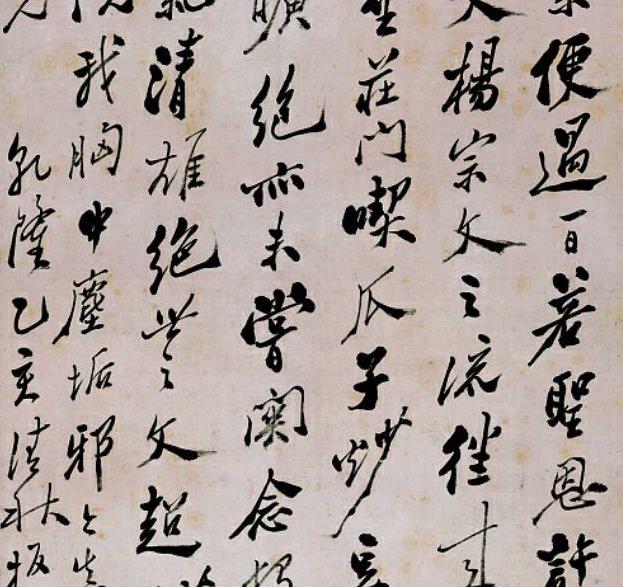 便過百若聖恩許
楊宗文之流往來
莊門喫瓜子炒豆
曠絕亦未嘗闌念
清雄絕世之文超
我胸中塵垢邪
乾隆乙亥清秋板